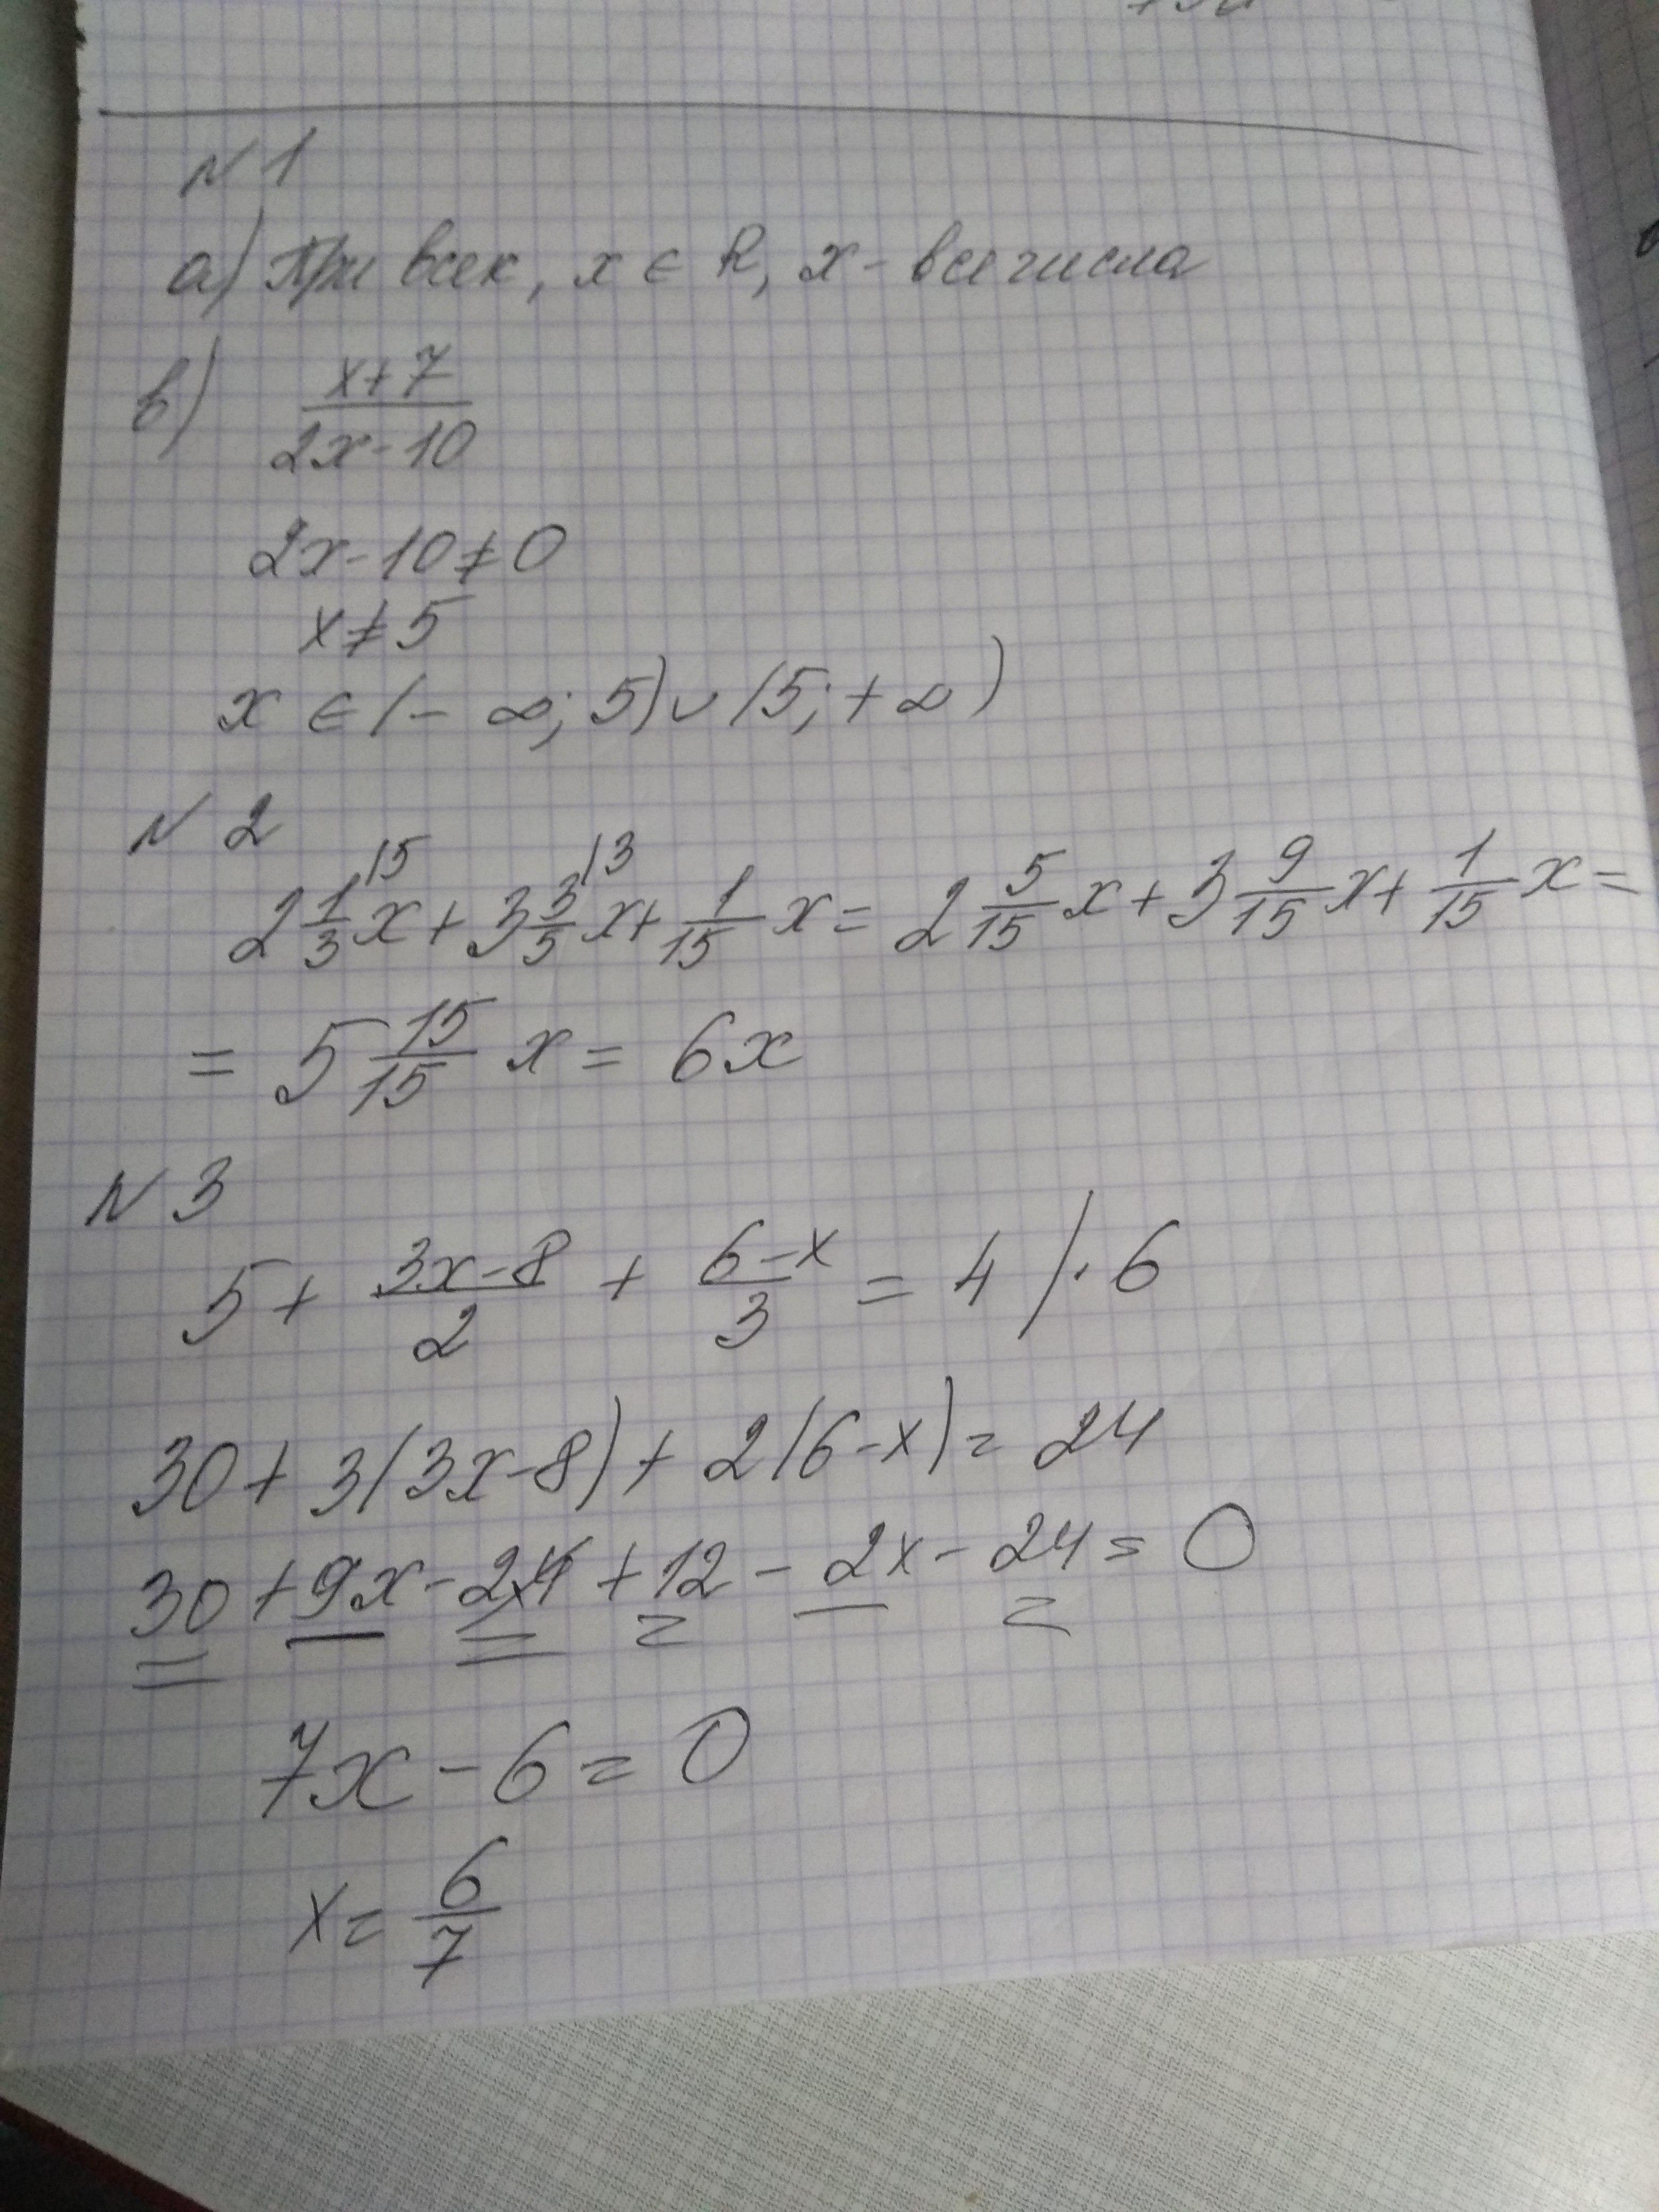 N 1
а) При всех, x ∈ R, x - все числа
в) (x+7)/(2x-10)
2x-10≠0
x≠5
x ∈ (-∞; 5) ∪ (5; +∞)
N 2
2 1/3 /5 x + 3 3/5 /3 x + 1/15 x = 2 5/15 x + 3 9/15 x + 1/15 x =
= 5 15/15 x = 6x
N 3
5 + (3x-8)/2 + (6-x)/3 = 4 /·6
30 + 3(3x-8) + 2(6-x) = 24
30 + 9x - 24 + 12 - 2x - 24 = 0
7x - 6 = 0
x = 6/7